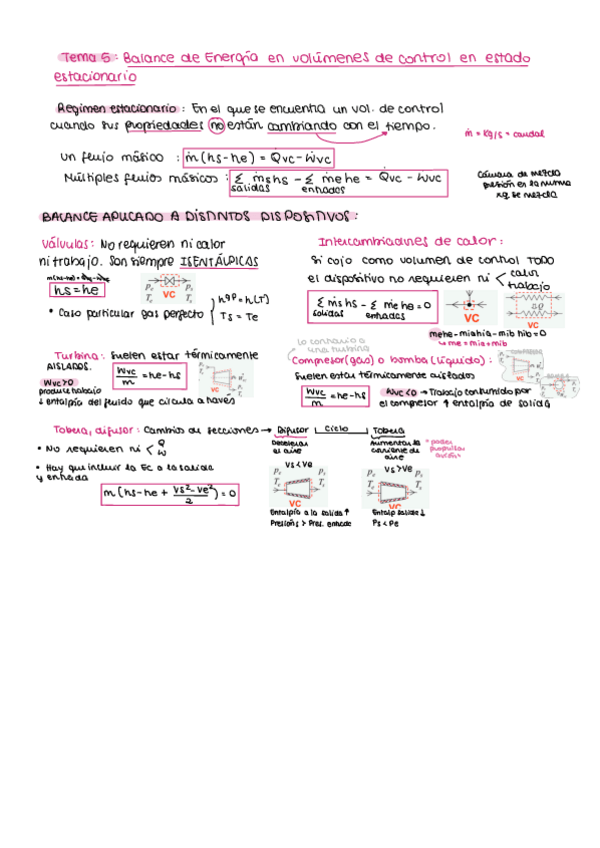 Tema 5: Balance de Energía en volúmenes de control en estado
estacionario
Regimen estacionario: En el que se encuentra un vol. de control
cuando sus propiedades no están cambiando con el tiempo.
ṁ = kg/s = caudal
Un flujo másico : ṁ(hs-he) = Q̇vc - Ẇvc
Múltiples flujos másicos : Σ ṁshs - Σ ṁehe = Q̇vc - Ẇvc
salidas entradas
Cámara de mezcla
presión en la misma
BALANCE APLICADO A DISTINTOS DISPOSITIVOS:
Válvulas: No requieren ni calor
ni trabajo. Son siempre ISENTÁLPICAS
hs = he
Pe Te VC Ps Ts
• Caso particular gas perfecto
hgp = h(T)
Ts = Te
Intercambiadores de calor:
Si cojo como volumen de control TODO
el dispositivo no requieren ni calor
trabajo
Σ ṁshs - Σ ṁehe = 0
salidas entradas
VC
VC
mehe - miahia - mib hib = 0
me = mia + mib
Turbina: Suelen estar térmicamente
AISLADOS.
Wvc>0
produce trabajo
Wvc/m = he-hs
VC
↓ entalpía del fluido que circula a través
lo contrario a
una turbina
Compresor(gas) o bomba(líquido):
Suelen estar térmicamente aislados
Wvc/m = he-hs
Wvc<0 → Trabajo consumido por
el compresor ↑ entalpía de salida
VC
Tobera, difusor: Cambio de secciones → Difusor ciclo Tobera
• No requieren ni Q
W
• Hay que incluir la Ec a la salida
y entrada
m(hs-he + vs²-ve²/2) = 0
Decelerar
el aire
vs<ve
Pe Te Ps Ts
VC
Entalpía a la salida ↑
Presións > Pres. entrada
Aumentar la
corriente de
aire
vs>ve
Pe Te Ps Ts
VC
Entalp salida ↓
Ps < Pe